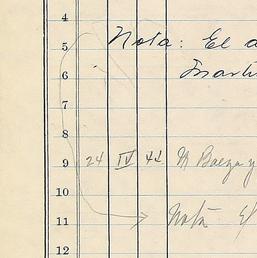 4
5 Nota: El a
6
7
8
9 24 IV 41 M Baeza y
10
11 Nota El
12